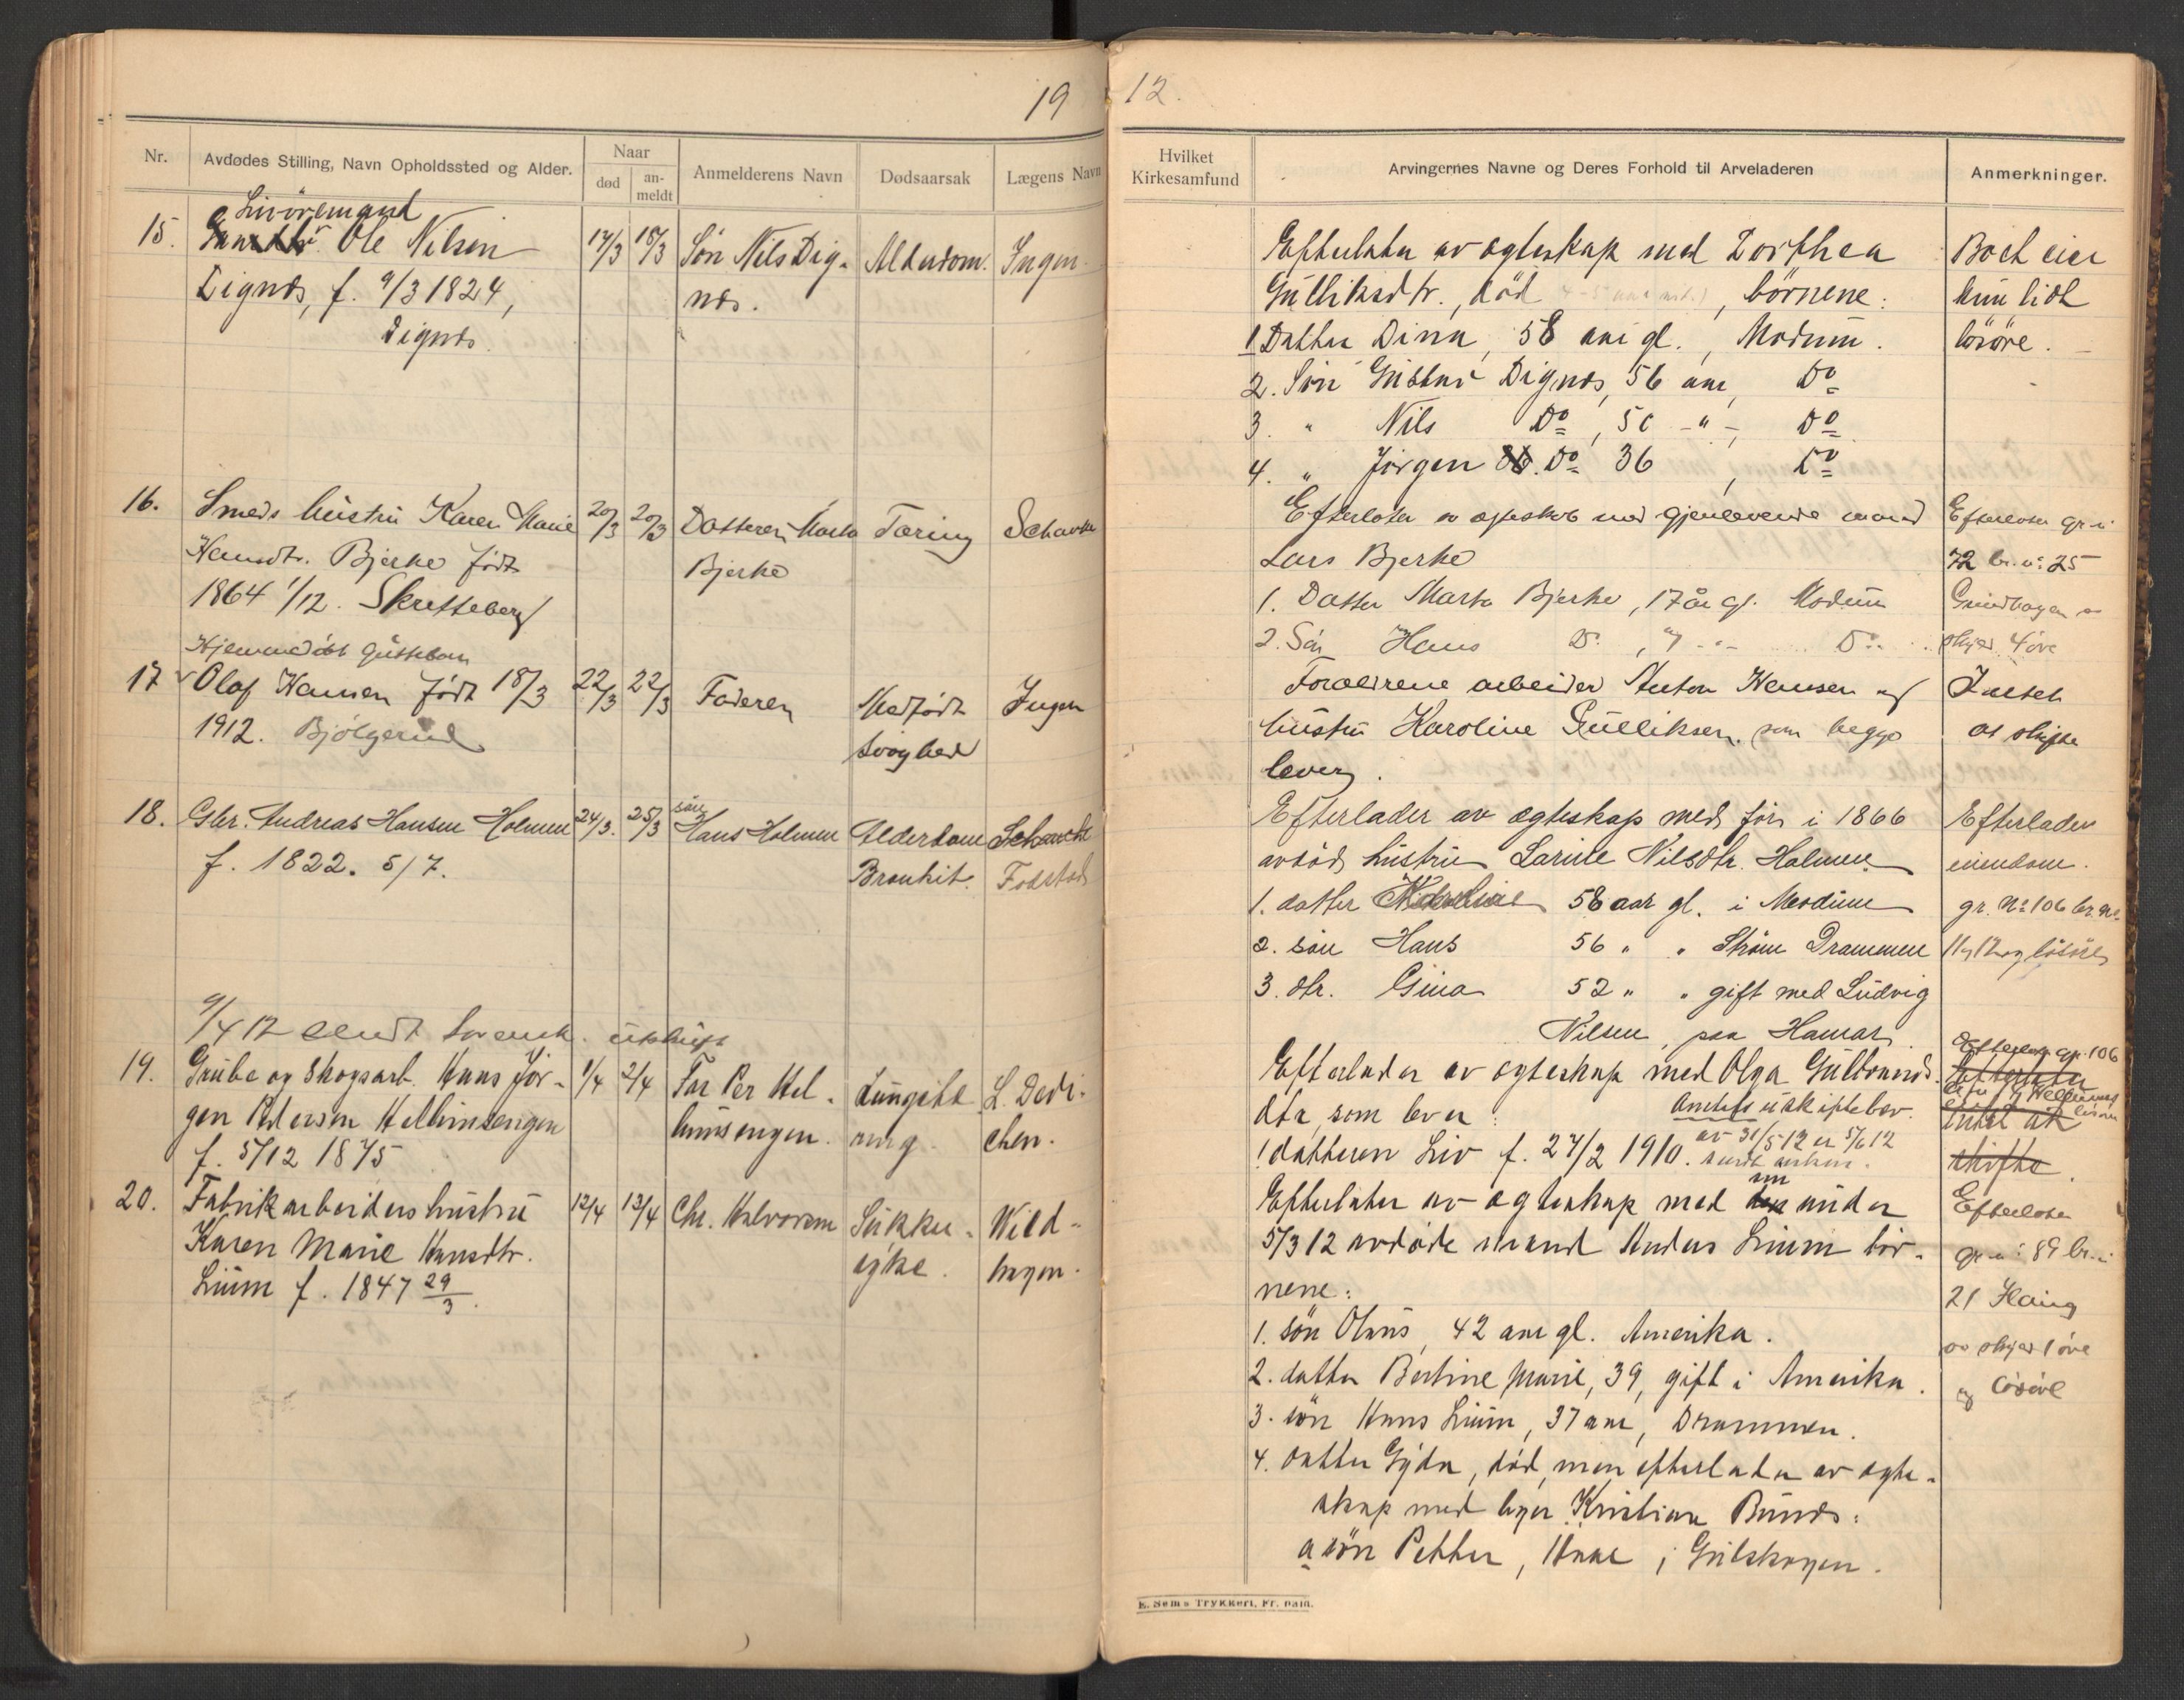 19
Nr.
Avdødes Stilling, Navn Opholdssted og Alder.
Naar
død
an-
meldt
Anmelderens Navn
Dødsaarsak
Lægens Navn
15.
Livöremand
Ole Nilsen
Dignæs, f. 9/3 1824,
Dignæs.
17/3
18/3
Sön Nils Dig-
næs.
Alderdom.
Ingen
16.
Smeds hustru Karen Marie
Hansdtr. Bjerke født
1864 1/12. Skretteberg
20/3
20/3
Datteren Marta
Bjerke
Tæring
Hjemmedöbt Guttebarn
17
Olaf Hansen født 18/3
1912. Bjölgerud
22/3
22/3
Faderen
Medfödt
svaghed
Ingen
18.
Gbr. Andreas Hansen Holmen
f. 1822. 5/7.
24/3.
25/3
sön
Hans Holmen
Alderdom
Bronkit.
9/4 12 sendt utskrift
19.
Grube og Skogsarb. Hans Jör-
gen Pedersen Hellumsengen
f. 5/12 1875
1/4
2/4
Far Per Hel-
lumsengen.
L. Dedi-
chen.
20.
Fabrikarbeiders hustru
Karen Marie Hansdtr.
Lium f. 1847 29/3.
12/4
13/4
Chr. Halvorsen
Sukker-
syke.
Wild-
hagen.
12.
Hvilket
Kirkesamfund
Arvingernes Navne og Deres Forhold til Arveladeren
Anmerkninger.
Efterlater av ægteskap med Dorthea
Gulliksdtr., död , börnene:
1 Datter Dina, 58 aar gl., Modum.
2. Sön Gustav Dignæs, 56 aar, Do
3. " Nils Do, 50 -"-, Do
4. " Jörgen Do 36, Do
Boet eier
kun lidt
lösöre.
Efterlater av ægteskab med gjenlevende mand
Lars Bjerke
1. Datter Marta Bjerke, 17 år gl. Modum
2. Sön Hans Do
Efterlater gr. nr
72 br. nr 25
skyld 4 öre
Forældrene arbeider Anton Hansen og
hustru Karoline Gulliksen, som begge
lever.
Intet
at skifte
Efterlader av ægteskap med før i 1866
avdöd hustru Larine Nilsdtr. Holmen
1. datter 58 aar gl. i Modum
2. sön Hans 56 " " Ström Drammen
3. dtr. Gina 52 " " gift med Ludvig
Nilsen, paa Hamar.
Efterlader
eiendom.
gr. No 106 br. no
11 og 12 og lösöre
Efterlader av ægteskap med Olga Gulbrands-
dtr., som lever:
1 datteren Liv f. 27/2 1910.
Amtets uskiftebev.
av 31/5 12 er 5/6 12
intet at
skifte.
Efterlater av ægteskap med sin under
5/3 12 avdöde mand Anders Lium bör-
nene:
1. sön Olaus, 42 aar gl. Amerika.
2. datter Bertine Marie, 39, gift i Amerika.
3. sön Hans Lium, 37 aar, Drammen.
4. datter Gyda, död, men efterlater av ægte-
skap med Kristian Bunæs:
a sön Petter, 11 aar i Gulskogen.
Efterlater
gr. nr 89 br. nr
21 Haug
av skyld 1 öre
og lösöre
E. Sem s Trykkeri, Fr. hald.